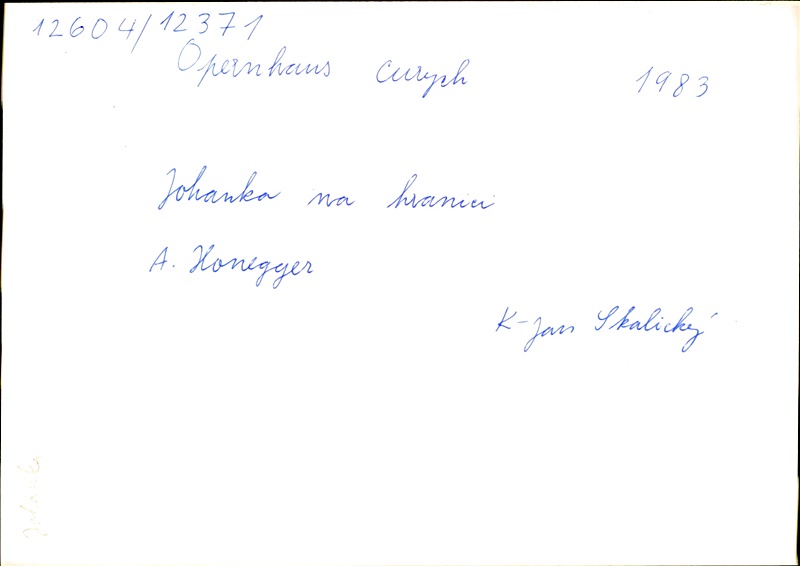 12604/12371
Opernhaus Curych 1983
Johanka na hranici
A. Honegger
K-Jan Skalický
Johanka